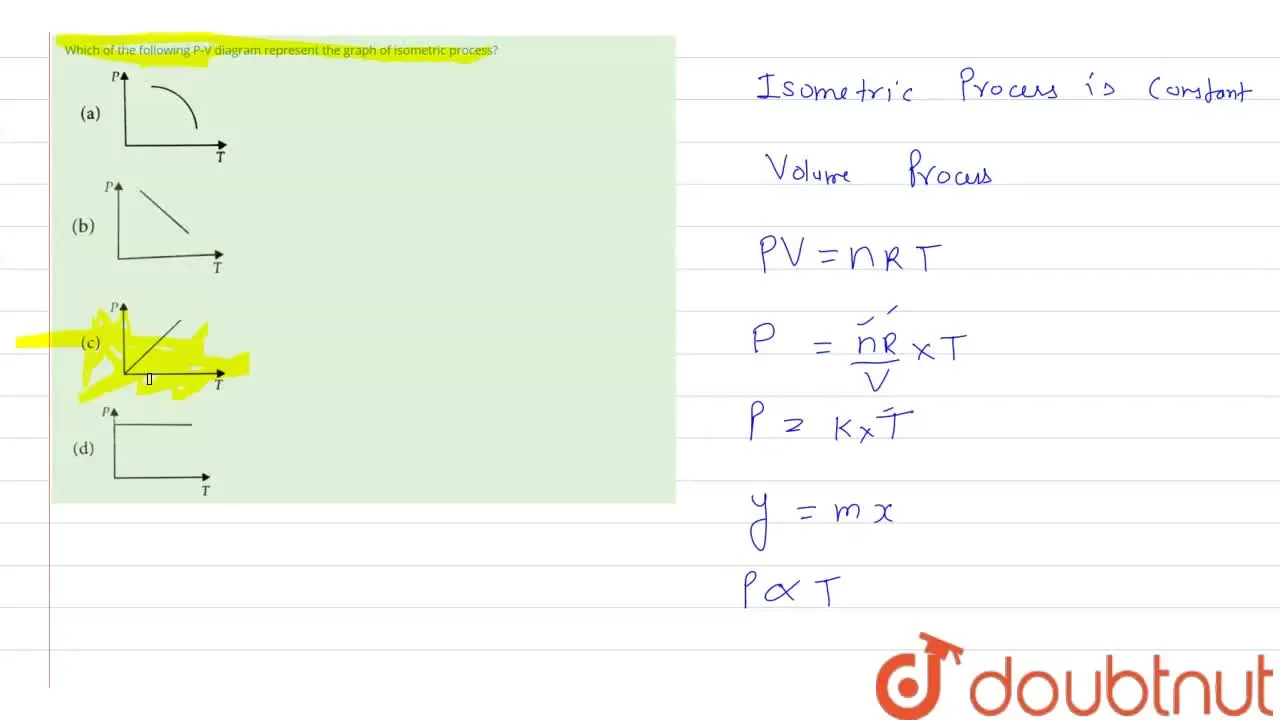 Which of the following P-V diagram represent the graph of isometric process?
P
(a)
T
P
(b)
T
P
(c)
T
P
(d)
T
Isometric Process is Constant
Volume Process
PV = nRT
P = nR/V × T
P = K × T
y = mx
P ∝ T
doubtnut